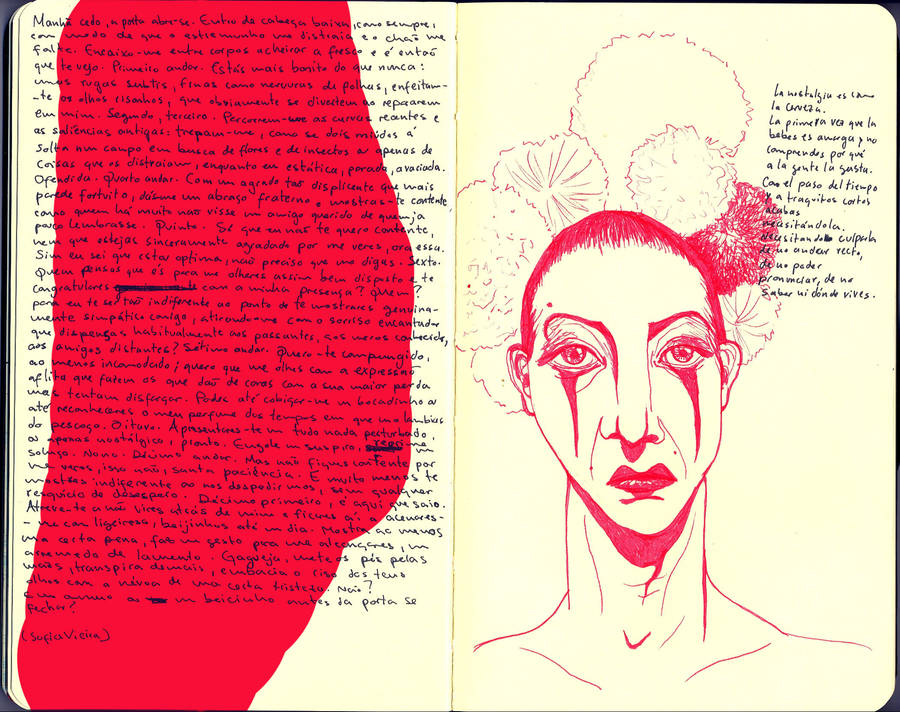 Manhã cedo, a porta abre-se. Entro de cabeça baixa, como sempre,
com medo de que o estremunho me distraia e o chão me
falte. Encaixo-me entre corpos a cheirar a fresco e é então
que te vejo. Primeiro andar. Estás mais bonito do que nunca:
umas rugas subtis, finas como nervuras de folhas, enfeitam-
-te os olhos risonhos, que obviamente se divertem ao repararem
em mim. Segundo, terceiro. Percorrem-me as curvas recentes e
as saliências antigas: trepam-me, como se dois miúdos à
solta num campo em busca de flores e de insectos e apenas de
coisas que os distraiam, enquanto eu estática, parada, avariada.
Ofendida. Quarto andar. Com um agrado tão displicente que mais
parece fortuito, dás-me um abraço fraterno e mostras-te contente
como quem há muito não visse um amigo querido de quem já
pouco lembrasse. Quinto. Sé que eu não te quero contente,
nem que estejas sinceramente agradado por me veres, ora essa.
Sim eu sei que estou optima, não preciso que me digas. Sexto.
Quem pensas que és para me olhares assim bem disposto e te
congratulares com a minha presença? Quem?
para eu te ser tão indiferente ao ponto de te mostrares genuina-
mente simpático comigo, atirando-me com o sorriso encantador
que dispensas habitualmente aos passantes, aos meros conhecidos,
aos amigos distantes? Sétimo andar. Quero-te compungido,
ao menos incomodado; quero que me olhes com a expressão
aflita que fazem os que dão de caras com a sua maior perda
mas tentam disfarçar. Podes até cobiçar-me um bocadinho ou
até reconheceres o meu perfume dos tempos em que mo lambias
do pescoço. Oitavo. Apresentares-te um tudo nada perturbado,
ou apenas nostálgico, pronto. Engole um suspiro, reprime um
soluço. Nono. Décimo andar. Mas não fiques contente por
me veres, isso não, santa paciência. E muito menos te
mostres indiferente ao nos despedirmos, sem qualquer
resquício de desespero. Décimo primeiro, é aqui que saio.
Atreve-te a não vires atrás de mim e ficares aí a acenares-
-me com ligeireza, beijinhos até um dia. Mostra ao menos
uma certa pena, faz um gesto para me alcançares, um
arremedo de lamento. Gagueja, mete os pés pelas
mãos, transpira demais, embacia o riso dos teus
olhos com a névoa de uma certa tristeza. Não?
um beicinho antes da porta se
fechar?
(Sofia Vieira)
La nostalgia es como
la cerveza.
La primera vez que la
bebes es amarga y no
comprendes por qué
a la gente la gusta.
Con el paso del tiempo
y a traguitos cortos
acabas
necesitándola.
Necesitando culparla
de no andar recto,
de no poder
pronunciar, de no
saber ni dónde vives.